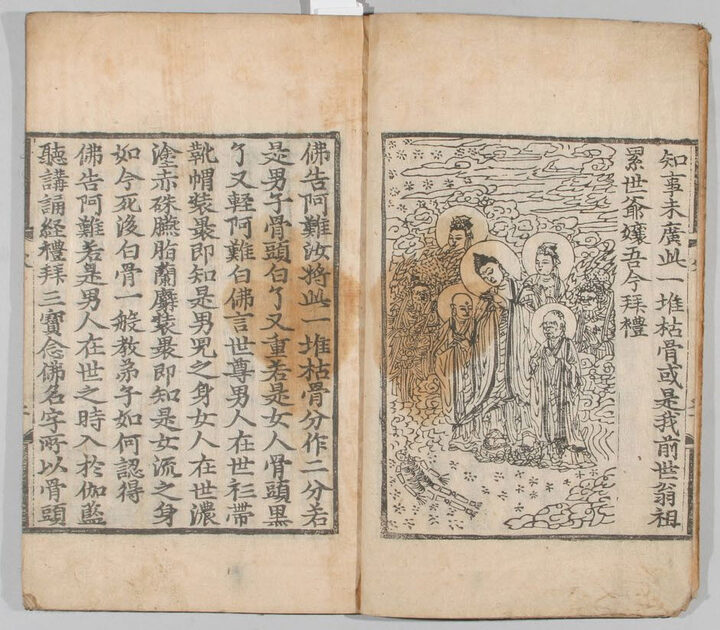 知事未廣此一堆枯骨或是我前世翁祖
累世爺孃吾今拜禮
佛告阿難汝將此一堆枯骨分作二分若
是男子骨頭白了又重若是女人骨頭黑
了又輕阿難白佛言世尊男人在世衫帶
靴帽裝最即知是男児之身女人在世濃
塗赤硃臙脂蘭麝裝最即知是女流之身
如今死後白骨一般教弟子如何認得
佛告阿難若是男人在世之時入於伽藍
聽講誦経禮拜三寶念佛名字所以骨頭